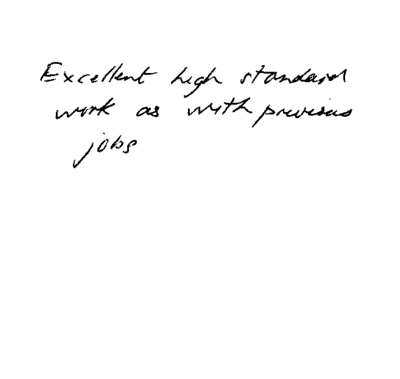 Excellent high standard
work as with previous
jobs